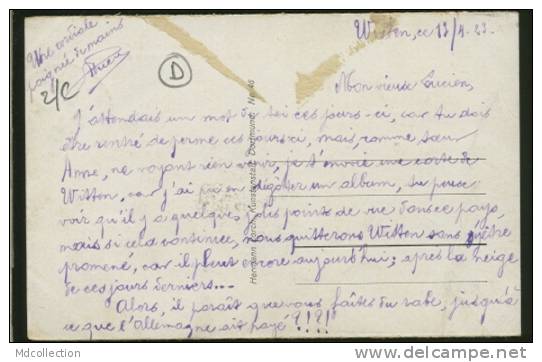 Une cordiale
poignée de mains
Witten, ce 13/4.23.
D
Mon vieux Lucien,
J'attendais un mot de toi ces jours-ci, car tu dois
être rentré de perme ces jours ci, mais, comme sœur
Anne, ne voyant rien venir, je t'envoie une carte de
Witten, car j'ai pu en dégoter un album, tu peux
voir qu'il y a quelques jolis points de vue dans ce pays,
mais si cela continue, nous quitterons Witten sans s'être
promené, car il pleut encore aujourd'hui; après la neige
de ces jours derniers...
Alors, il paraît que vous faites du rabe, jusqu'à
ce que l'Allemagne ait payé ?!?!
Hermann Lorch, Kunstanstalt, Dortmund. Nr. 46
Mdcollection
www.delcampe.net